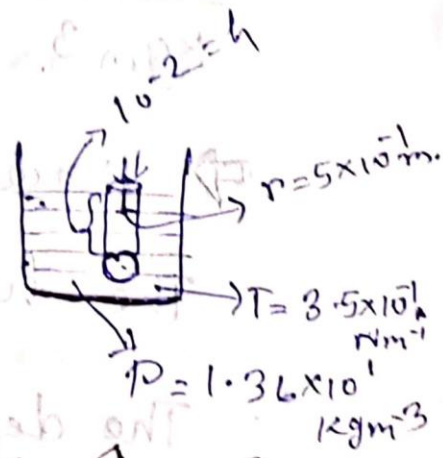 10⁻² = h
r = 5×10⁻¹m.
T = 3.5×10⁻¹
Nm⁻¹
P = 1.36×10¹
kgm⁻³
The de